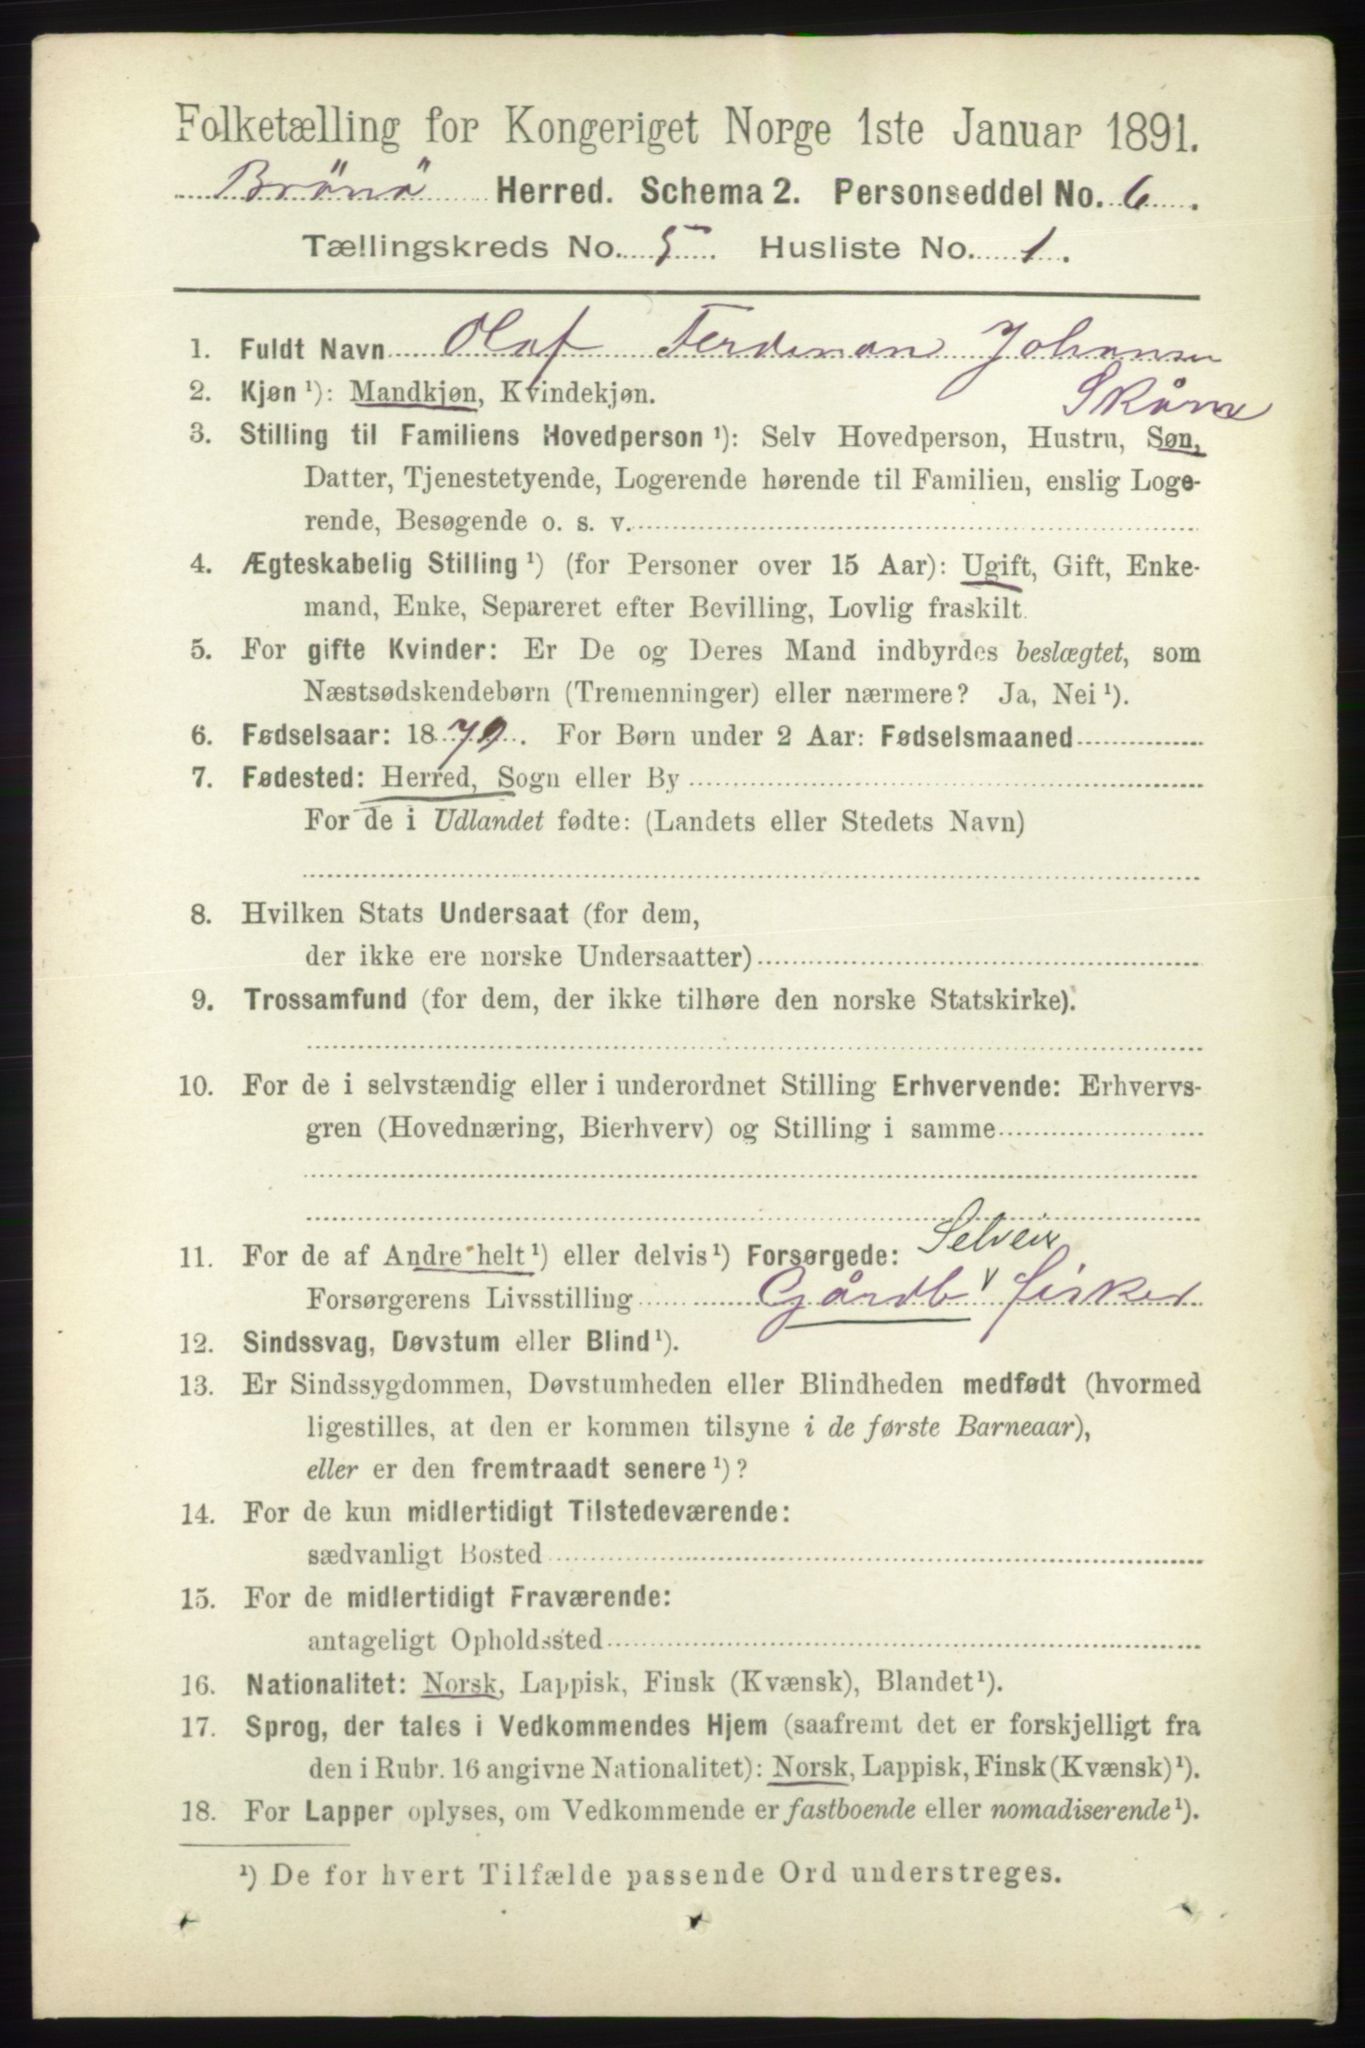 Folketælling for Kongeriget Norge 1ste Januar 1891.
Brönö Herred. Schema 2. Personseddel No. 6.
Tællingskreds No. 5. Husliste No. 1.
1. Fuldt Navn Olaf Ferdinan Johansen
Skårn
2. Kjøn ¹): Mandkjøn, Kvindekjøn.
3. Stilling til Familiens Hovedperson ¹): Selv Hovedperson, Hustru, Søn,
Datter, Tjenestetyende, Logerende hørende til Familien, enslig Loge-
rende, Besøgende o. s. v.
4. Ægteskabelig Stilling ¹) (for Personer over 15 Aar): Ugift, Gift, Enke-
mand, Enke, Separeret efter Bevilling, Lovlig fraskilt.
5. For gifte Kvinder: Er De og Deres Mand indbyrdes beslægtet, som
Næstsødskendebørn (Tremenninger) eller nærmere? Ja, Nei ¹).
6. Fødselsaar: 1879. For Børn under 2 Aar: Fødselsmaaned
7. Fødested: Herred, Sogn eller By
For de i Udlandet fødte: (Landets eller Stedets Navn)
8. Hvilken Stats Undersaat (for dem,
der ikke ere norske Undersaatter)
9. Trossamfund (for dem, der ikke tilhøre den norske Statskirke).
10. For de i selvstændig eller i underordnet Stilling Erhvervende: Erhvervs-
gren (Hovednæring, Bierhverv) og Stilling i samme
Selveier
11. For de af Andre helt ¹) eller delvis ¹) Forsørgede:
Forsørgerens Livsstilling Gårdb v fisker
12. Sindssvag, Døvstum eller Blind ¹).
13. Er Sindssygdommen, Døvstumheden eller Blindheden medfødt (hvormed
ligestilles, at den er kommen tilsyne i de første Barneaar),
eller er den fremtraadt senere ¹)?
14. For de kun midlertidigt Tilstedeværende:
sædvanligt Bosted
15. For de midlertidigt Fraværende:
antageligt Opholdssted
16. Nationalitet: Norsk, Lappisk, Finsk (Kvænsk), Blandet ¹).
17. Sprog, der tales i Vedkommendes Hjem (saafremt det er forskjelligt fra
den i Rubr. 16 angivne Nationalitet): Norsk, Lappisk, Finsk (Kvænsk) ¹).
18. For Lapper oplyses, om Vedkommende er fastboende eller nomadiserende ¹).
¹) De for hvert Tilfælde passende Ord understreges.